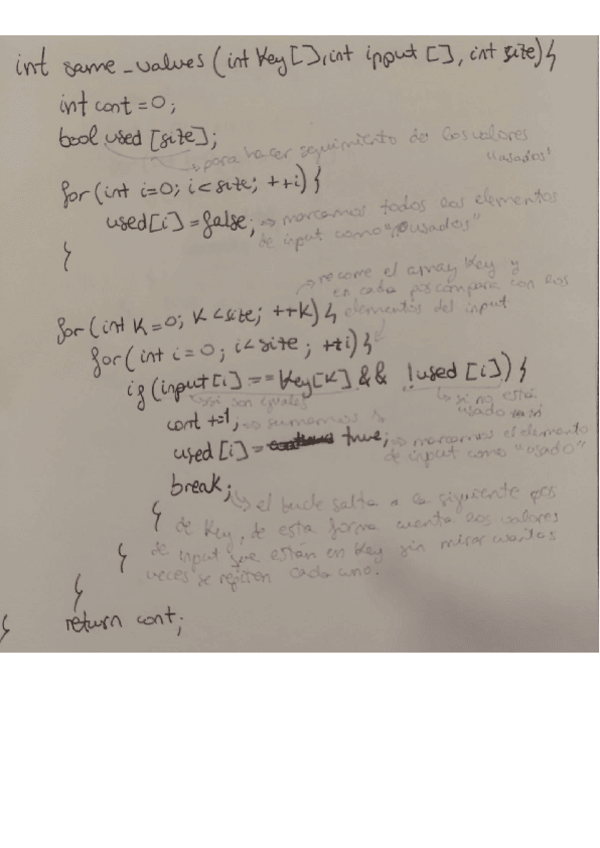 int same_values (int key[], int input [], int size) {
int cont = 0;
bool used [size];
→ para hacer seguimiento de los valores
"usados"
for (int i=0; i<size; ++i) {
used[i] = false; → marcamos todos los elementos
de input como "no usados"
}
→ recorre el array key y
en cada pos compara con los
for (int K=0; K<size; ++K) { elementos del input
for (int i=0; i<size; ++i) {
if (input[i] == key[K] && !used [i]) {
→ si son iguales → si no está
usado
cont +=1; → sumamos 1
used [i] = true; → marcamos el elemento
de input como "usado"
break; → el bucle salta a la siguiente pos
} de key, de esta forma cuenta los valores
} de input que están en key sin mirar cuantas
veces se repiten cada uno.
}
return cont;
}